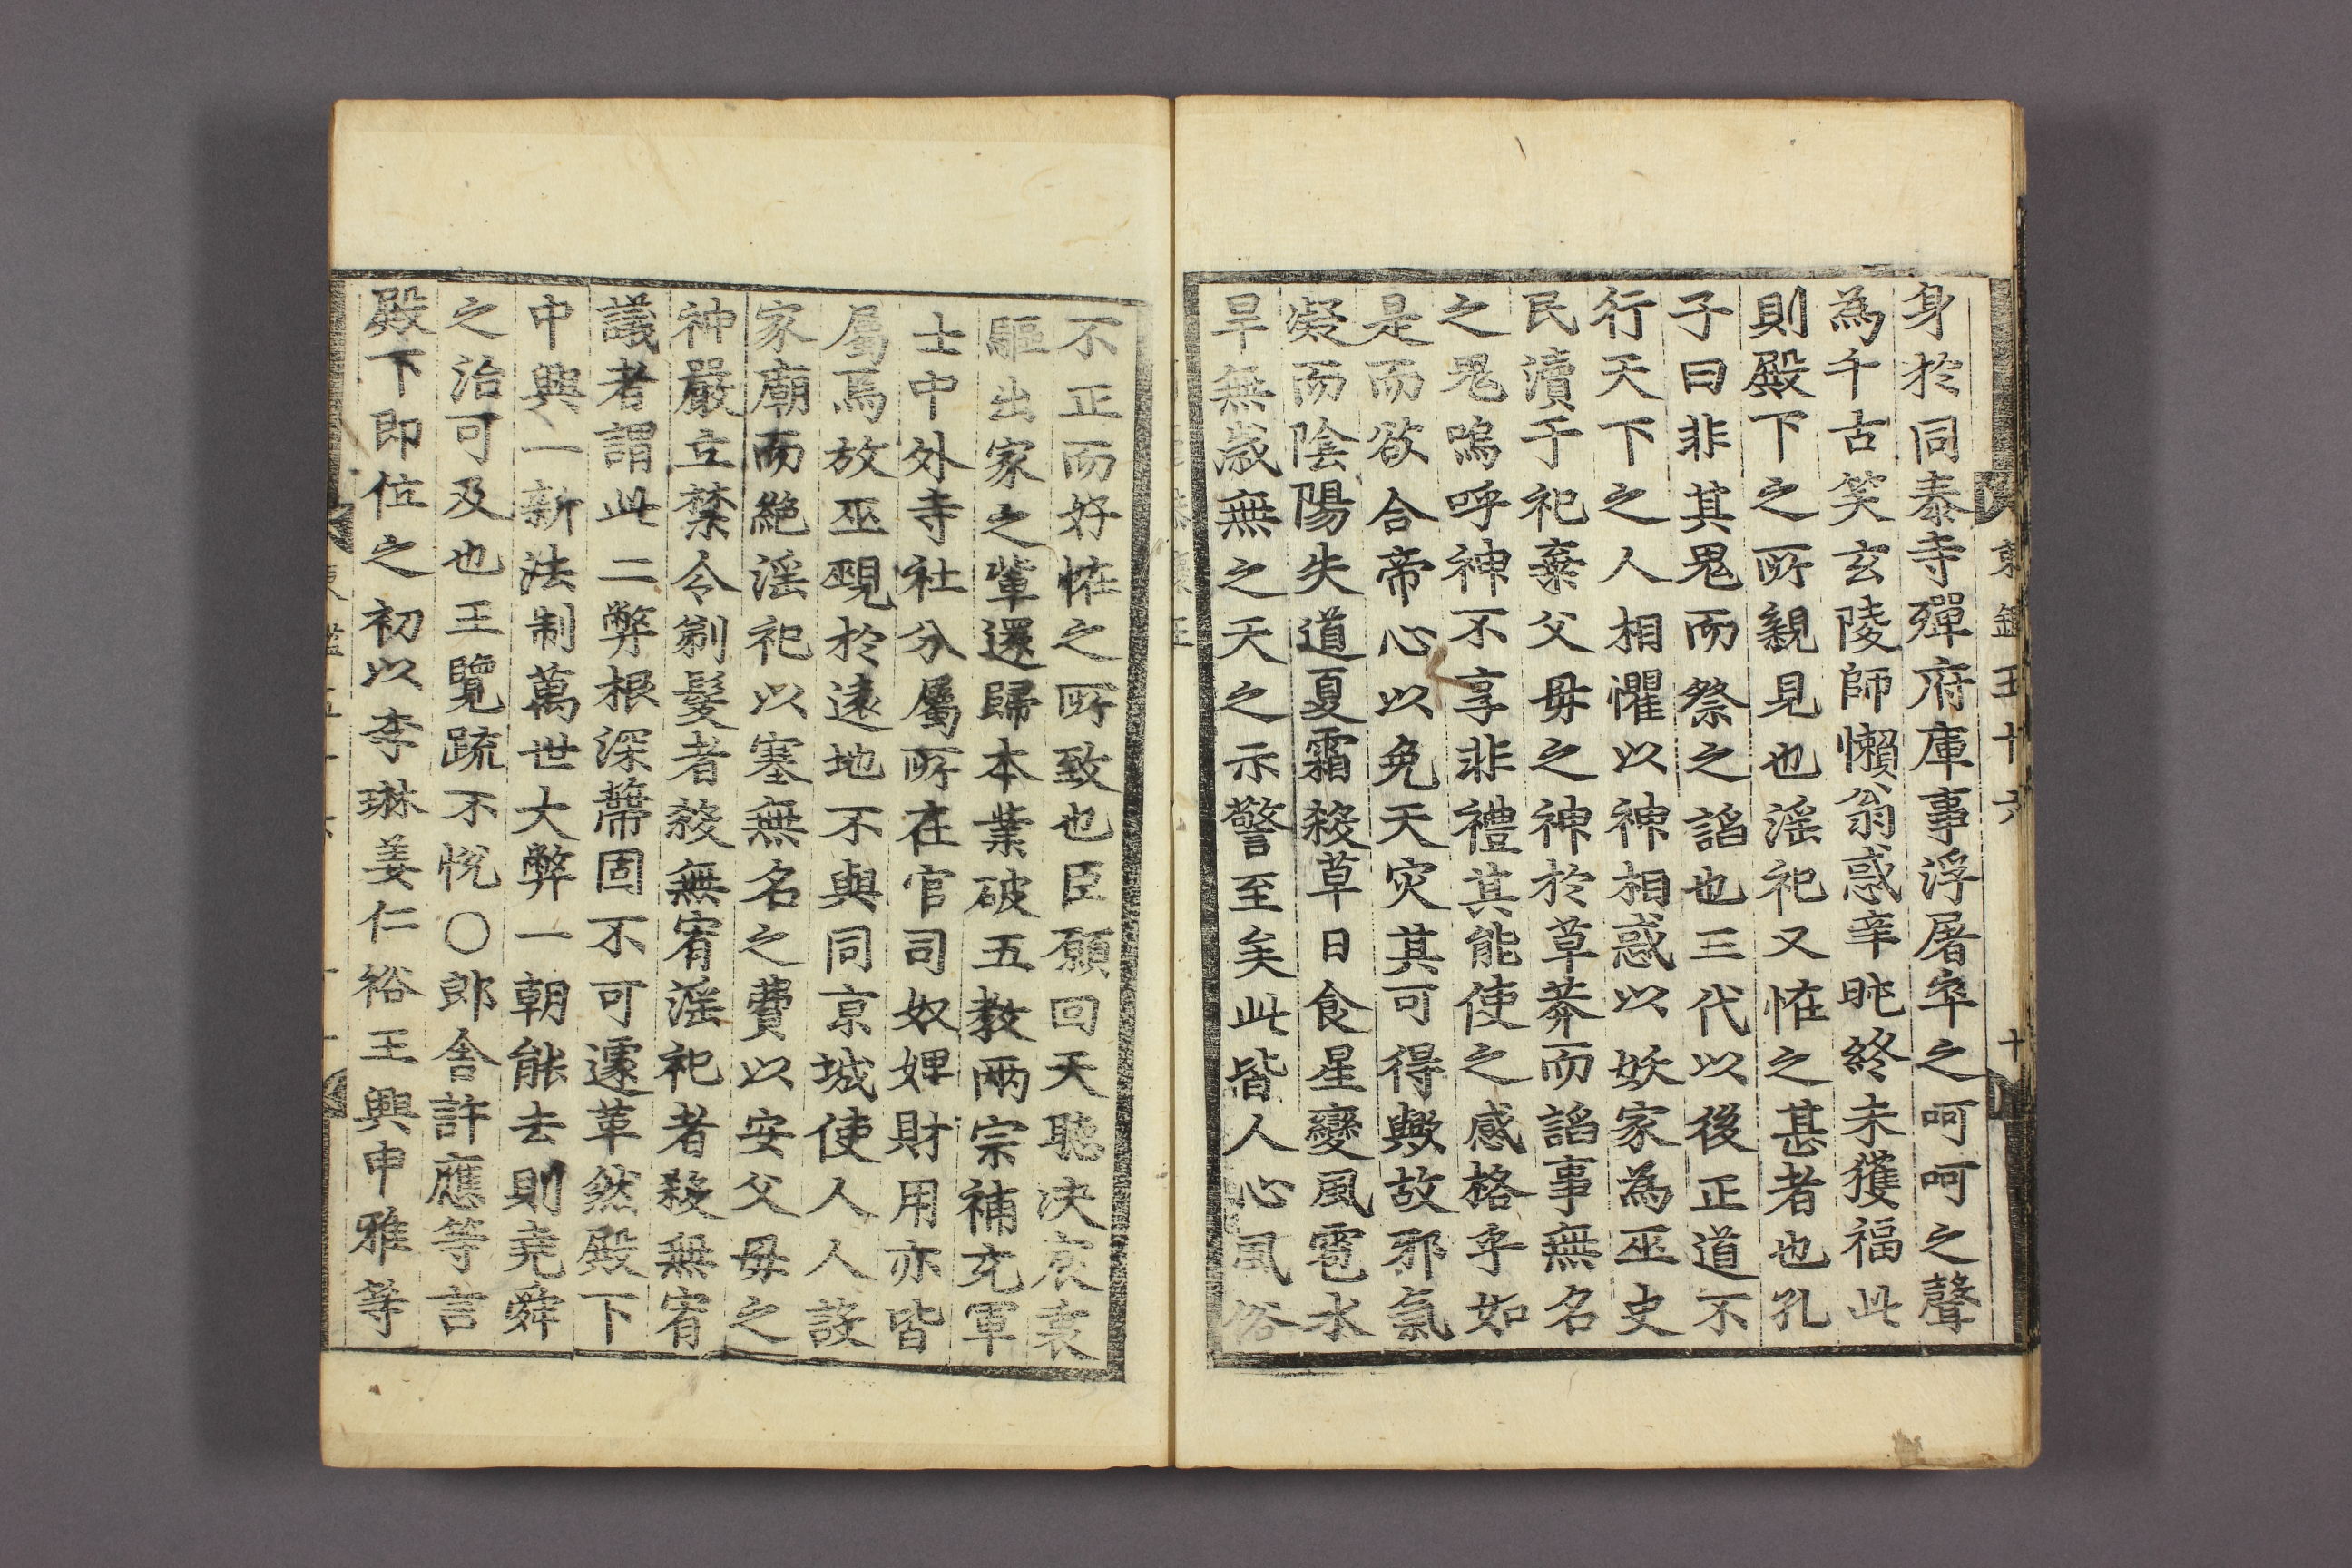 身於同泰寺殫府庫事浮屠卒之呵呵之聲
為千古笑玄陵師懶翁惑辛旽終未獲福此
則殿下之所親見也淫祀又恠之甚者也孔
子曰非其鬼而祭之諂也三代以後正道不
行天下之人相懼以神相惑以妖家為巫史
民瀆于祀棄父母之神於草莽而諂事無名
之鬼嗚呼神不享非禮其能使之感格乎如
是而欲合帝心以免天灾其可得歟故邪氣
凝而陰陽失道夏霜殺草日食星變風雹水
旱無歲無之天之示警至矣此皆人心風俗
不正而好恠之所致也臣願回天聰决宸衷
驅出家之輩還歸本業破五教兩宗補充軍
士中外寺社分屬所在官司奴婢財用亦皆
屬焉放巫覡於遠地不與同京城使人人設
家廟而絕淫祀以塞無名之費以安父母之
神嚴立禁令剃髮者殺無宥淫祀者殺無宥
議者謂此二弊根深蔕固不可遽革然殿下
中興一新法制萬世大弊一朝能去則堯舜
之治可及也王覽䟽不悅○郎舍許應等言
殿下即位之初以李琳姜仁裕王興申雅等